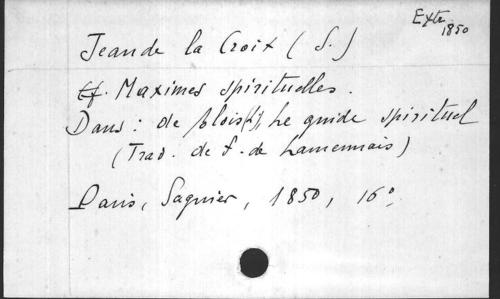 Extr.
1850
Jean de la Croix (S.)
Maximes spirituelles.
Dans: de Blois (L), Le guide spirituel
(Trad. de F. de Lamennais)
Paris, Sagnier, 1850, 16°.